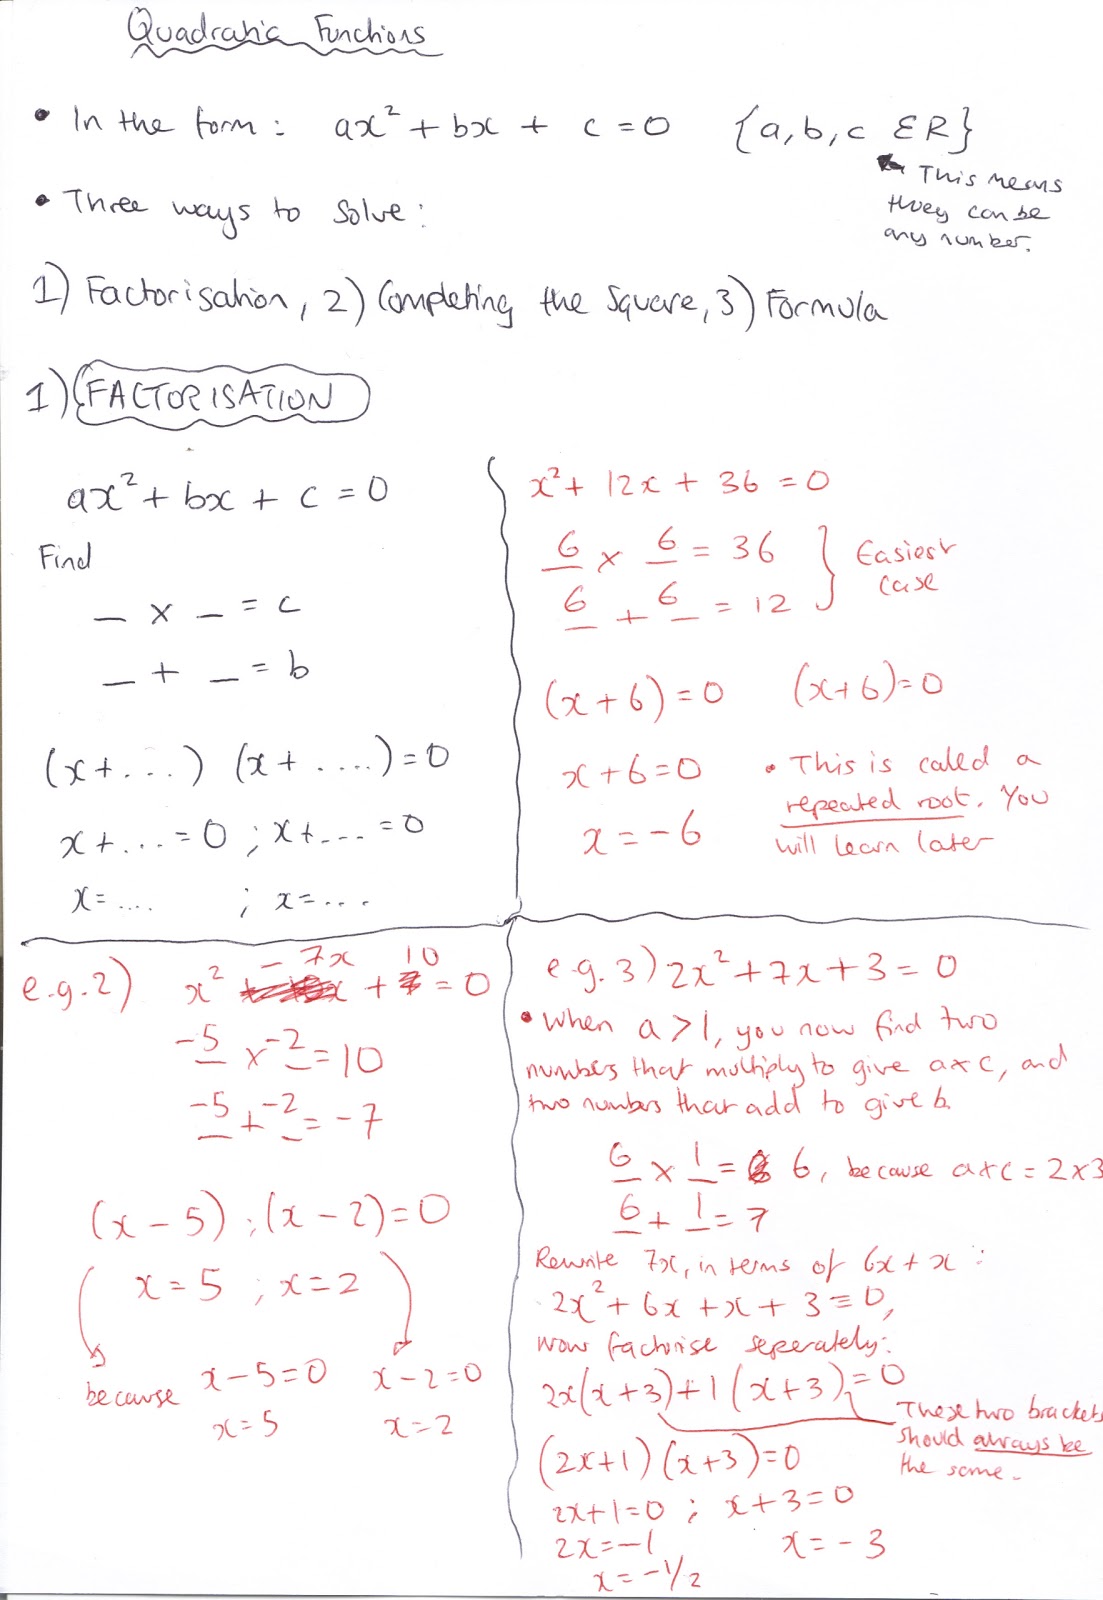 Quadratic Functions
• In the form: ax² + bx + c = 0 {a, b, c ER}
This means
they can be
any number.
• Three ways to solve:
1) Factorisation, 2) Completing the square, 3) Formula
1) FACTORISATION
ax² + bx + c = 0
Find
_ x _ = c
_ + _ = b
(x + ...) (x + ....) = 0
x + ... = 0 ; x + ... = 0
x = .... ; x = ...
x² + 12x + 36 = 0
6 x 6 = 36
6 + 6 = 12
Easiest
case
(x + 6) = 0 (x + 6) = 0
x + 6 = 0
x = -6
• This is called a
repeated root. You
will learn later
e.g. 2) x² - 7x + 10 = 0
-5 x -2 = 10
-5 + -2 = -7
(x - 5) ; (x - 2) = 0
x = 5 ; x = 2
because x - 5 = 0 x - 2 = 0
x = 5 x = 2
e.g. 3) 2x² + 7x + 3 = 0
• When a > 1, you now find two
numbers that multiply to give a x c, and
two numbers that add to give b.
6 x 1 = 6, because a x c = 2 x 3
6 + 1 = 7
Rewrite 7x, in terms of 6x + x :
2x² + 6x + x + 3 = 0,
now factorise seperately:
2x(x + 3) + 1(x + 3) = 0
These two brackets
should always be
the same.
(2x + 1) (x + 3) = 0
2x + 1 = 0 ; x + 3 = 0
2x = -1 x = -3
x = -1/2